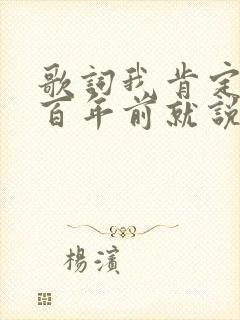 歌詞我肯定
百年前就說
楊濱